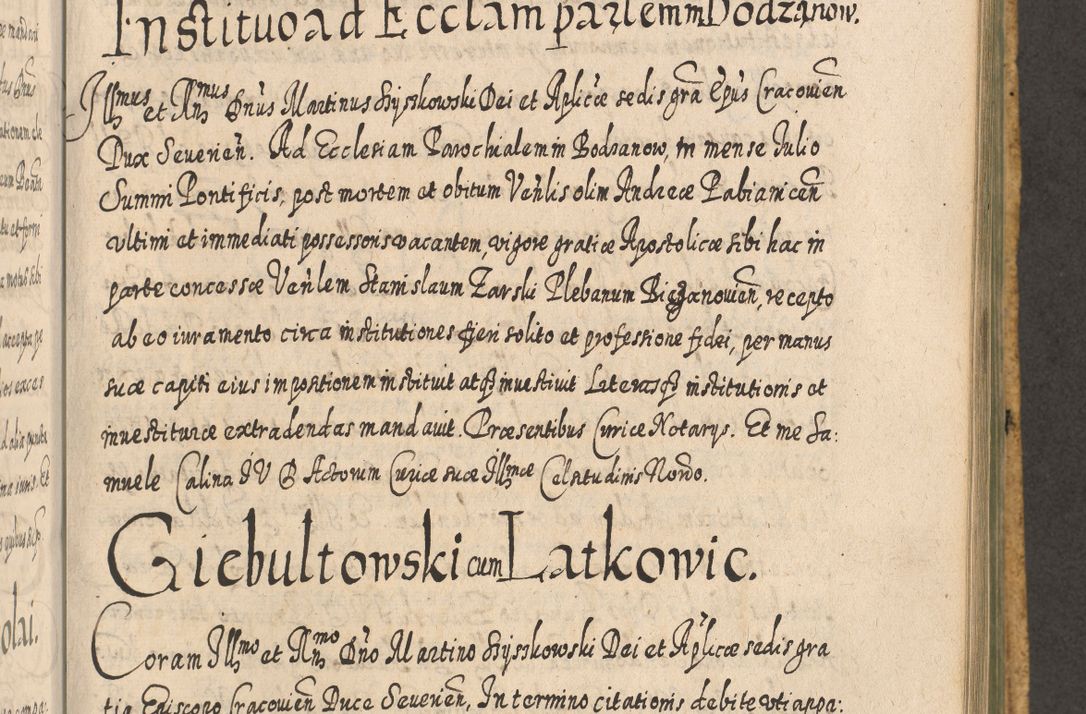 Institutio ad Ecclam parlem in Bodzanow.
Illmus et Rndmus Dnus Martinus Szyszkowski Dei et Aplicæ sedis gra Epus Cracovien
Dux Severien. Ad Ecclesiam Parochialem in Bodzanow, in mense Iulio
Summi Pontificis, post mortem et obitum Venlis olim Andreæ Pabianicen
ultimi et immediati possessoris vacantem, vigore gratiæ Apostolicæ sibi hac in
parte concessæ Venlem Stanislaum Zarski Plebanum Biezanovien, recepto
ab eo iuramento circa institutiones fieri solito et professione fidei, per manus
suæ capiti eius impositionem instituit atq investivit Literasq institutionis et
investituræ extradendas mandavit. Præsentibus Curiæ Notarys. Et me Sa:
muele Calina I V D Actorum Curiæ suæ Illmæ Celsitudinis Nordo.
Giebultowski cum Latkowic.
Coram Illmo et Rndmo Dno Martino Szyszkowski Dei et Aplicæ sedis gra
tia Episcopo Cracovien Duce Severien, In termino citationis debite uti appa: